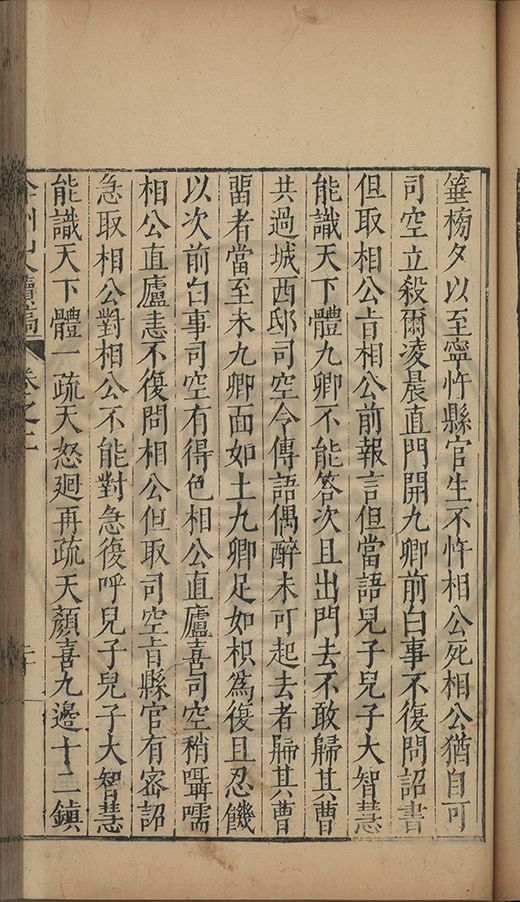 箠榜夕以至寧忤縣官生不忤相公死相公猶自可
司空立殺爾凌晨直門開九卿前白事不復問詔書
但取相公旨相公前報言但當語兒子兒子大智慧
能識天下體九卿不能答次且出門去不敢歸其曹
共過城西邸司空令傳語偶醉未可起去者歸其曹
留者當至未九卿面如土九卿足如枳為復且忍饑
以次前白事司空有得色相公直廬喜司空稍囁嚅
相公直廬恚不復問相公但取司空旨縣官有密詔
急取相公對相公不能對急復呼兒子兒子大智慧
能識天下體一疏天怒迴再疏天顏喜九邊十二鎮
卷之二